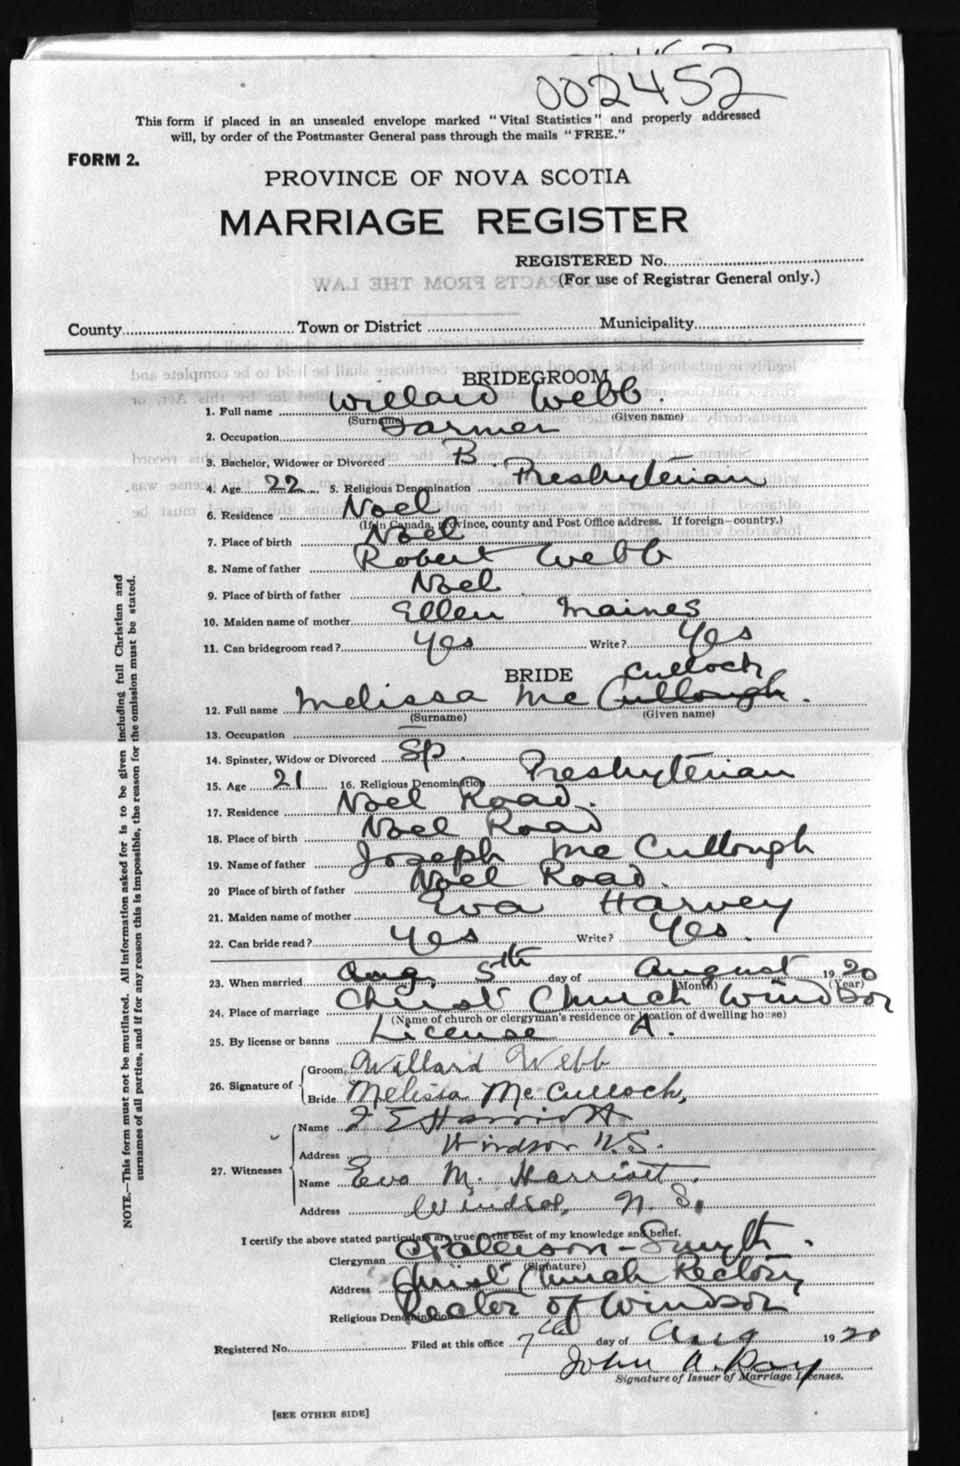 002452
This form if placed in an unsealed envelope marked "Vital Statistics" and properly addressed
will, by order of the Postmaster General pass through the mails "FREE."
FORM 2.
PROVINCE OF NOVA SCOTIA
MARRIAGE REGISTER
REGISTERED No.
(For use of Registrar General only.)
County Town or District Municipality
BRIDEGROOM
1. Full name Willard Webb
(Surname) (Given name)
2. Occupation Farmer
3. Bachelor, Widower or Divorced B.
4. Age 22 5. Religious Denomination Presbyterian
6. Residence Noel
(If in Canada, province, county and Post Office address. If foreign—country.)
7. Place of birth Noel
8. Name of father Robert Webb
9. Place of birth of father Noel
10. Maiden name of mother Ellen Maines
11. Can bridegroom read? Yes Write? Yes
BRIDE Culloch
12. Full name Melissa Mc Cullough.
(Surname) (Given name)
13. Occupation —
14. Spinster, Widow or Divorced Sp.
15. Age 21 16. Religious Denomination Presbyterian
17. Residence Noel Road.
18. Place of birth Noel Road
19. Name of father Joseph Mc Cullough
20 Place of birth of father Noel Road.
21. Maiden name of mother Eva Harvey
22. Can bride read? Yes Write? Yes.
23. When married Aug. 5th day of August 1920
(Month) (Year)
24. Place of marriage Christ Church Windsor
(Name of church or clergyman's residence or location of dwelling house)
25. By license or banns License A.
26. Signature of Groom, Willard Webb
Bride Melissa McCulloch,
27. Witnesses
Name F E Harriott
Address Windsor N.S.
Name Eva M. Harriott
Address Windsor, N. S.
I certify the above stated particulars are true to the best of my knowledge and belief.
Clergyman Paterson-Smyth.
(Signature)
Address Christ Church Rectory
Religious Denomination Rector of Windsor
Registered No. Filed at this office 7th day of Aug 1920
John A. Ray
Signature of Issuer of Marriage Licenses.
[SEE OTHER SIDE]
NOTE.—This form must not be mutilated. All information asked for is to be given including full Christian and
surnames of all parties, and if for any reason this is impossible, the reason for the omission must be stated.